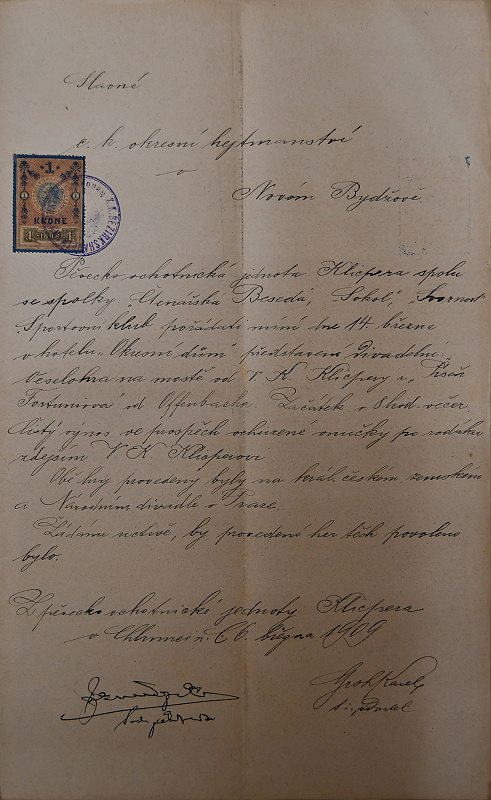 Slavné
c. k. okresní hejtmanství
v
Novém Bydžově.
1
KRONE
1 1
K.K. BEZIRKSHAU
Pěvecko-ochotnická jednota Klicpera spolu
se spolky „Čtenářská Beseda", „Sokol", „Svornost"
„Sportovní klub pořádati míní dne 14. března
v hotelu „Okresní dům" představení divadelní:
Veselohra na mostě od V. K. Klicpery a „Píseň
Fortuniova" od Offenbacha. Začátek o 8 hod. večer
čistý výnos ve prospěch ochuzené vnučky po rodáku
zdejším V. K. Klicperovi
Obě hry provedeny byly na král. českém zemském
a Národním divadle v Praze.
Žádáme uctivě, by provedení her těch povoleno
bylo.
Z pěvecko-ochotnické jednoty Klicpera
v Chlumci n. C 6. března 1909
Groh Karel